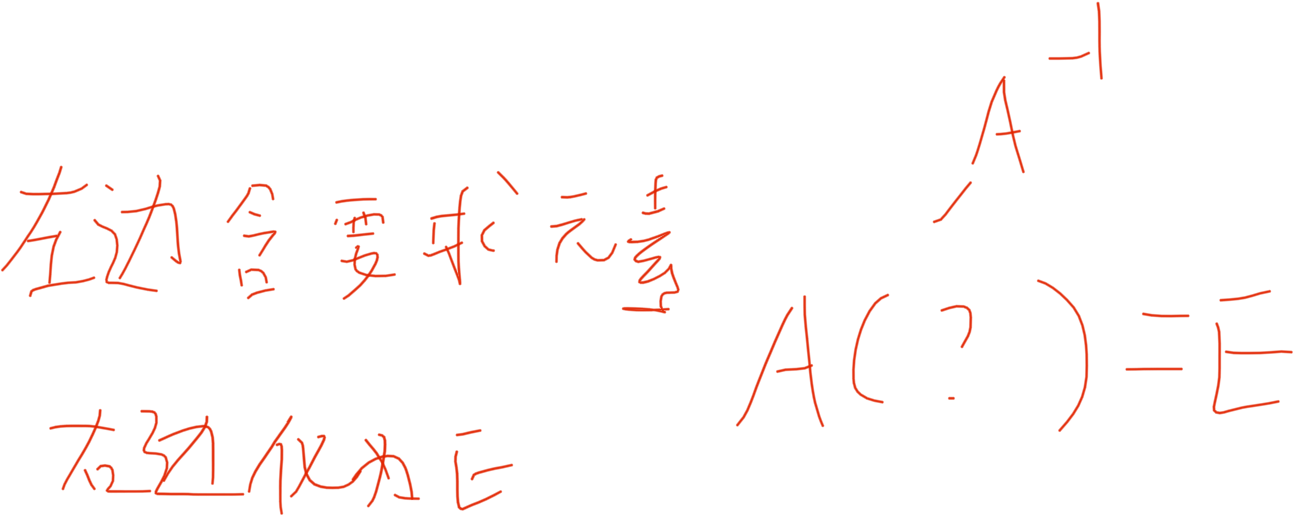 左边含要求元素
右边化为E
A⁻¹
A(?)=E